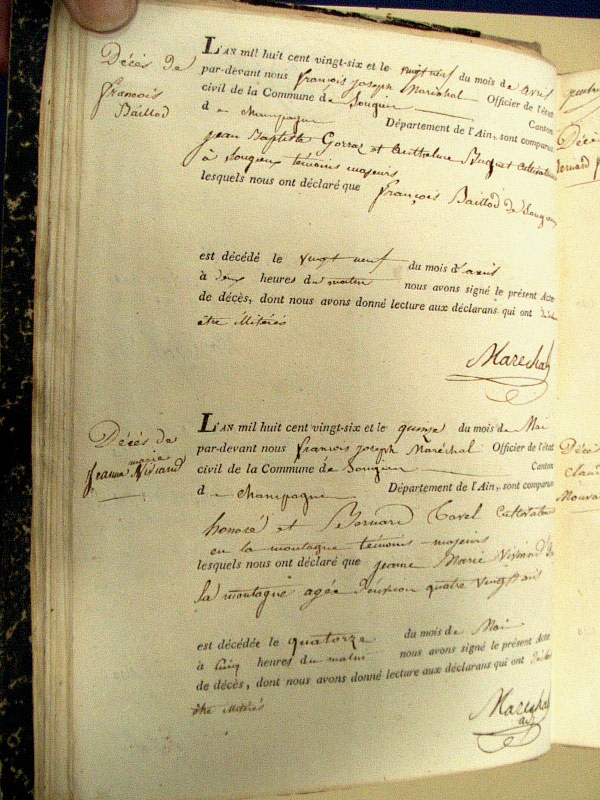 Décès de
François
Baillod
L'AN mil huit cent vingt-six et le vingt neuf du mois de avril
par-devant nous françois joseph Maréchal Officier de l'état
civil de la Commune de Songieu Canton
d e Champagne Département de l'Ain, sont comparus
jean Baptiste Gorraz et Anthelme Cultivateurs
à Songieux témoins majeurs
lesquels nous ont déclaré que françois Baillod de Songieu
est décédé le vingt neuf du mois d'avril
à deux heures du matin nous avons signé le présent Acte
de décès, dont nous avons donné lecture aux déclarans qui ont
être illitérés
Marechal
Décès de
jeanne marie Viviand
L'AN mil huit cent vingt-six et le quinze du mois de Mai
par-devant nous françois joseph Maréchal Officier de l'état
civil de la Commune de Songieu Canton
d e Champagne Département de l'Ain, sont comparus
honoré et Bernard Tavel Cultivateurs
en la montagne témoins majeurs
lesquels nous ont déclaré que jeanne Marie Viviand de
la montagne agée d'environ quatre vingt ans
est décédée le quatorze du mois de Mai
à cinq heures du matin nous avons signé le présent Acte
de décès, dont nous avons donné lecture aux déclarans qui ont
être illitérés
Marechal
Décès
Claud